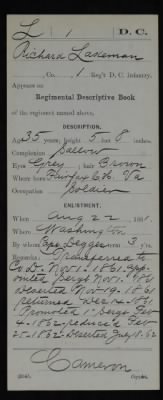 L | 1 | D. C.
Richard Laseman
, Co. 1, Reg't D. C. Infantry.
Appears on
Regimental Descriptive Book
of the regiment named above.
DESCRIPTION.
Age 35 years; height 5 feet 8 inches.
Complexion Sallow
Eyes Grey; hair Brown
Where born Fairfax Co. Va
Occupation Soldier
ENLISTMENT.
When Aug 22, 1861.
Where Washington
By whom term 3 y'rs.
Remarks: Transferred to
Co D. Nov 1. 1861 App-
ointed Sergt Nov 1. 1861
deserted Nov 19. 1861
returned Dec 14. 1861
Promoted 1" Sergt
4. 1862 - reduc'd
25. 1862 - Deserted July 18. 62
Cameron
Copyist.